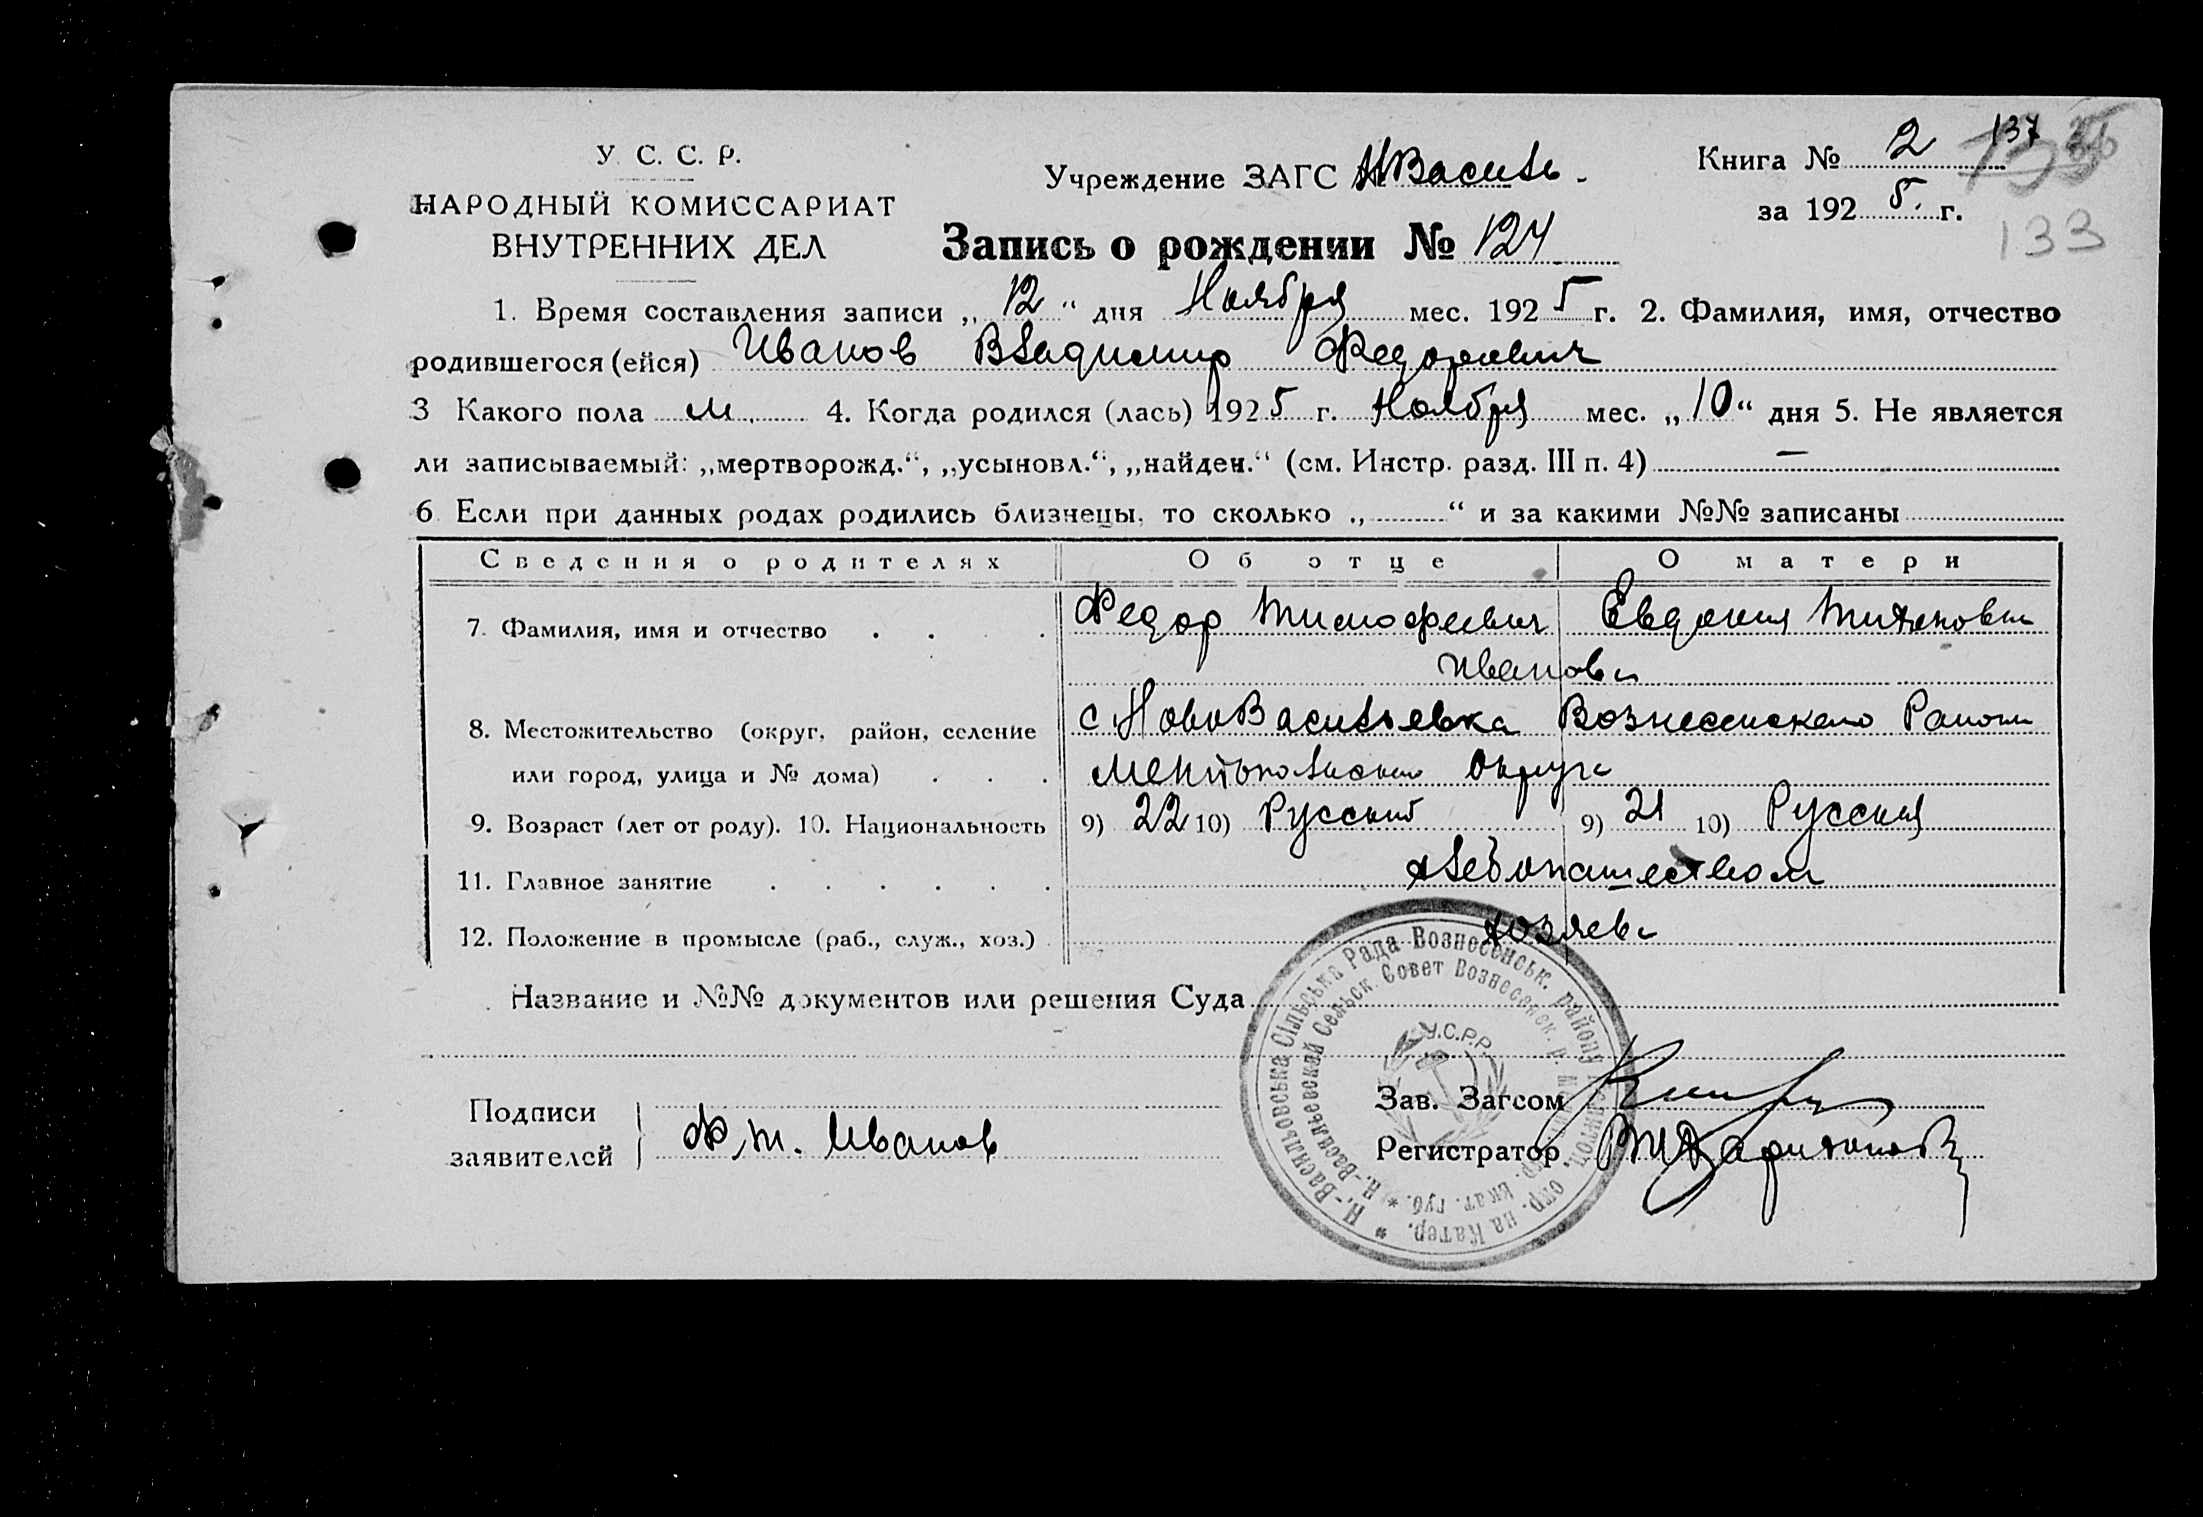 У. С. С. Р.
НАРОДНЫЙ КОМИССАРИАТ
ВНУТРЕННИХ ДЕЛ
Учреждение ЗАГС НВасиль.
Книга № 2 137
за 1925. г.
133
Запись о рождении № 124
1. Время составления записи „12“ дня Ноября мес. 1925 г. 2. Фамилия, имя, отчество
родившегося (ейся) Иванов Владимир Федорович
3 Какого пола м. 4. Когда родился (лась) 1925 г. Ноября мес. „10“ дня 5. Не является
ли записываемый: „мертворожд.“, „усыновл.“, „найден.“ (см. Инстр. разд. III п. 4) —
6 Если при данных родах родились близнецы, то сколько „“ и за какими №№ записаны
Сведения о родителях Об отце О матери
7. Фамилия, имя и отчество Федор Тимофеевич Евдокия
Иванови
8. Местожительство (округ, район, селение с НовоВасильевка Вознесенского Района
или город, улица и № дома) Мелитопольского округа
9. Возраст (лет от роду). 10. Национальность 9) 22 10) Русский 9) 21 10) Русская
11. Главное занятие хлебопашеством
12. Положение в промысле (раб., служ., хоз.) хозяева
Название и №№ документов или решения Суда
Н.-Васильовська Сільська Рада Вознесенськ. району Мелітоп. окр. на Катер.
Н.-Васильевский Сельск. Совет Вознесенск. р. Екат. губ.
У.С.Р.Р.
Подписи
заявителей Ф. Т. Иванов
Зав. Загсом
Регистратор Харитонов